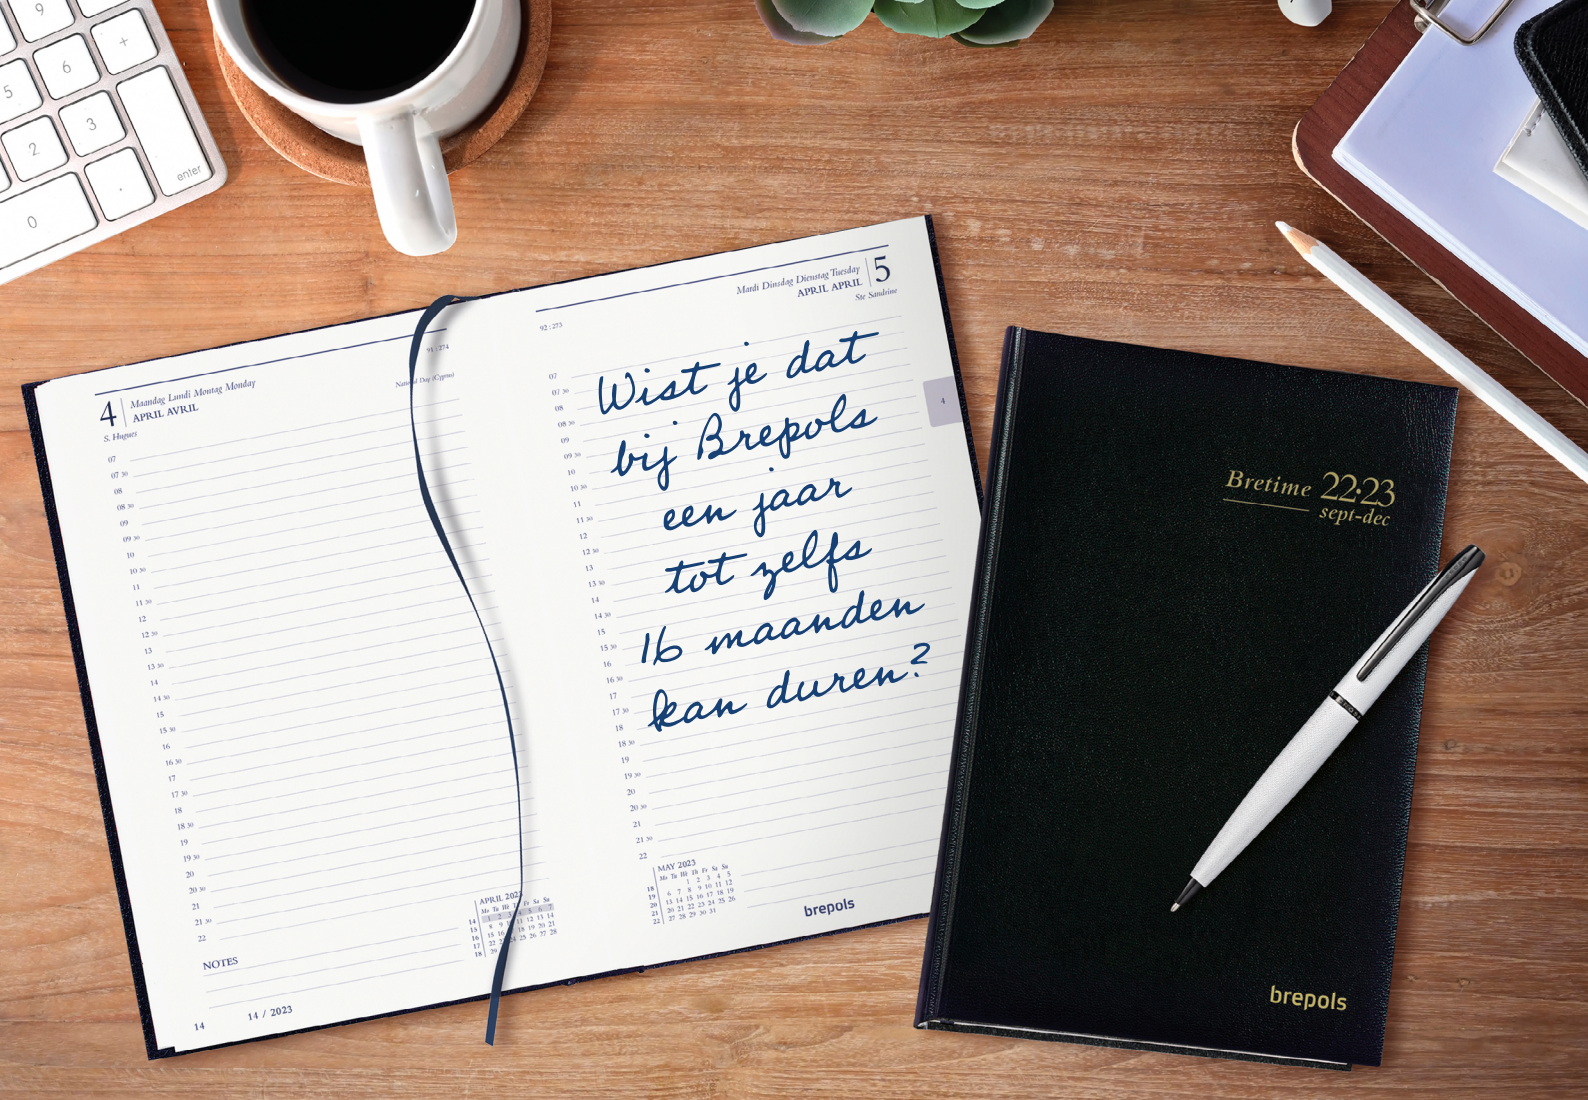 9
+
6
5
3
2
enter
.
0
4
Maandag Lundi Montag Monday
APRIL AVRIL
S. Hugues
91:274
National Day (Cyprus)
07
07 30
08
08 30
09
09 30
10
10 30
11
11 30
12
12 30
13
13 30
14
14 30
15
15 30
16
16 30
17
17 30
18
18 30
19
19 30
20
20 30
21
21 30
22
NOTES
14
14 / 2023
APRIL 2023
Mo Tu We Th Fr Sa Su
Mardi Dinsdag Dienstag Tuesday
APRIL APRIL
5
Ste Sandrine
92:273
07
07 30
08
08 30
09
09 30
10
10 30
11
11 30
12
12 30
13
13 30
14
14 30
15
15 30
16
16 30
17
17 30
18
18 30
19
19 30
20
20 30
21
21 30
22
Wist je dat
bij Brepols
een jaar
tot zelfs
16 maanden
kan duren?
4
MAY 2023
Mo Tu We Th Fr Sa Su
18 1 2 3 4 5
19 6 7 8 9 10 11 12
20 13 14 15 16 17 18 19
21 20 21 22 23 24 25 26
22 27 28 29 30 31
brepols
Bretime 22·23
sept-dec
brepols